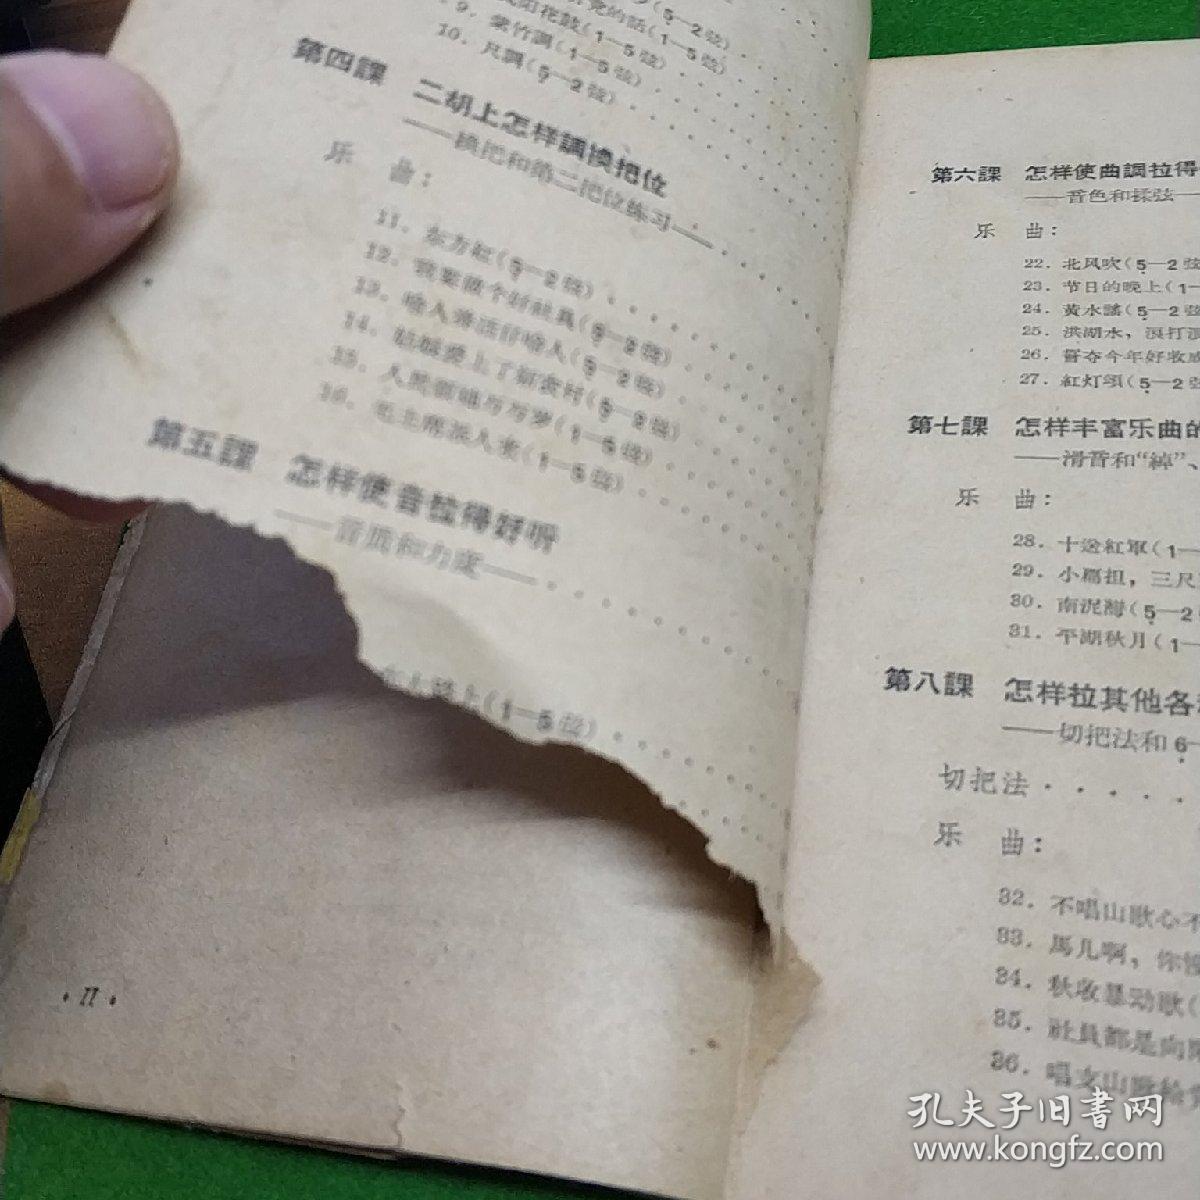 的話(1—5弦)
花鼓(1—5弦)
9. 紫竹調(1—5弦)
10. 凡調(5—2弦)
第四課 二胡上怎样調换把位
——换把和第二把位练习——
乐 曲:
11. 东方紅(5—2弦)
12. (5—2弦)
13. (5—2弦)
14. (5—2弦)
15. (1—5弦)
16. 毛主席派人来(1—5弦)
第五課 怎样使音拉得好听
——音质和力度——
路上(1—5弦)
· II ·
第六課 怎样使曲調拉得
——音色和揉弦—
乐 曲:
22. 北风吹(5—2弦
23. 节日的晚上(1—
24. 黄水謠(5—2弦
25. 洪湖水,浪打浪
26. 誓夺今年好收成
27. 紅灯頌(5—2弦
第七課 怎样丰富乐曲的
——滑音和“綽”、
乐 曲:
28. 十送紅軍(1—
29. 小扁担,三尺
30. 南泥湾(5—2
31. 平湖秋月(1—
第八課 怎样拉其他各
——切把法和6—
切把法
乐 曲:
32. 不唱山歌心不
33. 馬儿啊,你慢
34. 秋收暴动歌(
35. 社員都是向陽
36. 唱支山歌給党
孔夫子旧书网
www.kongfz.com